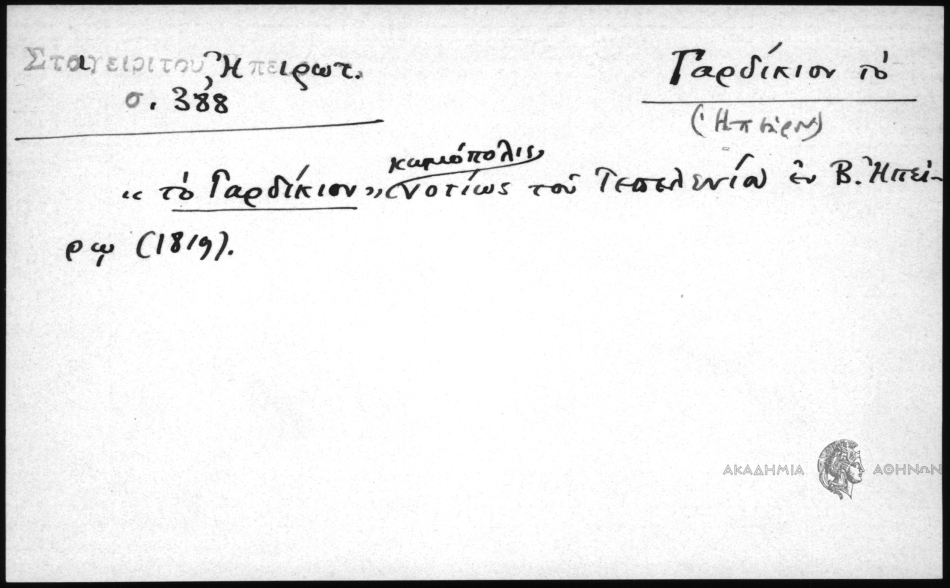 Σταγειρίτου, Ἠπειρωτ.
σ. 388
Γαρδίκιον τὸ
(Ἠπείρου)
κωμόπολις
« τὸ Γαρδίκιον » νοτίως τοῦ Τεπελενίου ἐν Β. Ἠπεί-
ρῳ (1819).
ΑΚΑΔΗΜΙΑ ΑΘΗΝΩΝ